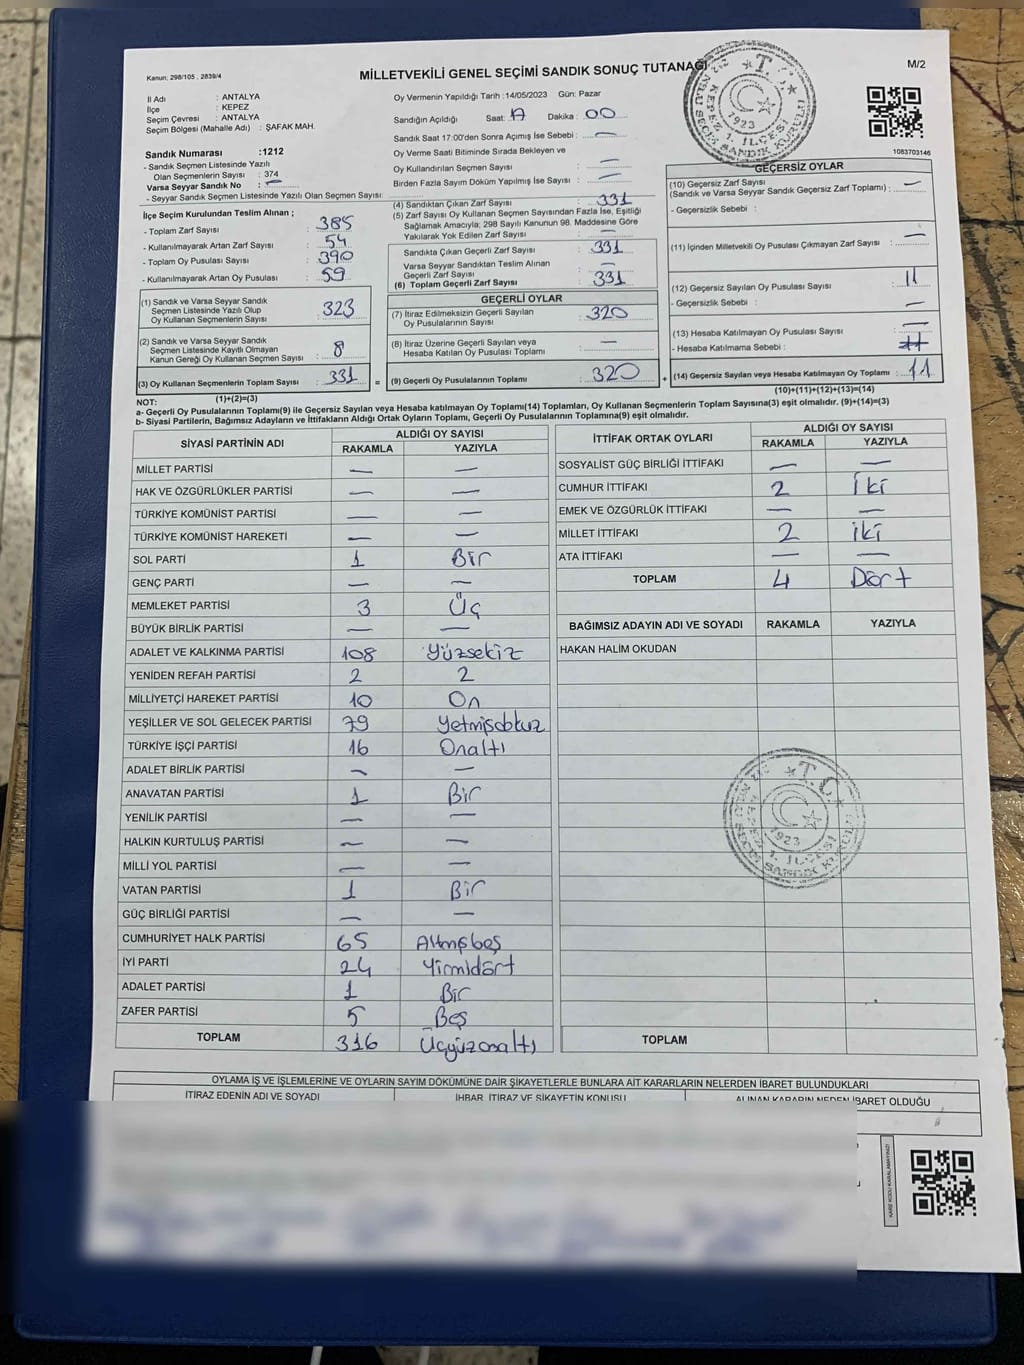 Kanun: 298/105 , 2839/4
MİLLETVEKİLİ GENEL SEÇİMİ SANDIK SONUÇ TUTANAĞI
M/2
İl Adı : ANTALYA
İlçe : KEPEZ
Seçim Çevresi : ANTALYA
Seçim Bölgesi (Mahalle Adı) : ŞAFAK MAH.
Sandık Numarası :1212
- Sandık Seçmen Listesinde Yazılı
Olan Seçmenlerin Sayısı : 374
Varsa Seyyar Sandık No : —
- Seyyar Sandık Seçmen Listesinde Yazılı Olan Seçmen Sayısı:
İlçe Seçim Kurulundan Teslim Alınan ;
- Toplam Zarf Sayısı : 385
- Kullanılmayarak Artan Zarf Sayısı : 54
- Toplam Oy Pusulası Sayısı : 390
- Kullanılmayarak Artan Oy Pusulası : 59
(1) Sandık ve Varsa Seyyar Sandık
Seçmen Listesinde Yazılı Olup
Oy Kullanan Seçmenlerin Sayısı : 323
(2) Sandık ve Varsa Seyyar Sandık
Seçmen Listesinde Kayıtlı Olmayan
Kanun Gereği Oy Kullanan Seçmen Sayısı : 8
(3) Oy Kullanan Seçmenlerin Toplam Sayısı : 331 =
(1)+(2)=(3)
Oy Vermenin Yapıldığı Tarih :14/05/2023 Gün: Pazar
Sandığın Açıldığı Saat: 17 Dakika : 00
Sandık Saat 17:00'den Sonra Açımış İse Sebebi : —
Oy Verme Saati Bitiminde Sırada Bekleyen ve
Oy Kullandırılan Seçmen Sayısı : —
Birden Fazla Sayım Döküm Yapılmış İse Sayısı : —
(4) Sandıktan Çıkan Zarf Sayısı : 331
(5) Zarf Sayısı Oy Kullanan Seçmen Sayısından Fazla İse, Eşitliği
Sağlamak Amacıyla; 298 Sayılı Kanunun 98. Maddesine Göre
Yakılarak Yok Edilen Zarf Sayısı : —
Sandıkta Çıkan Geçerli Zarf Sayısı : 331
Varsa Seyyar Sandıktan Teslim Alınan
Geçerli Zarf Sayısı : —
(6) Toplam Geçerli Zarf Sayısı : 331
GEÇERLİ OYLAR
(7) İtiraz Edilmeksizin Geçerli Sayılan
Oy Pusulalarının Sayısı : 320
(8) İtiraz Üzerine Geçerli Sayılan veya
Hesaba Katılan Oy Pusulası Toplamı : —
(9) Geçerli Oy Pusulalarının Toplamı : 320 +
1083703146
GEÇERSİZ OYLAR
(10) Geçersiz Zarf Sayısı
(Sandık ve Varsa Seyyar Sandık Geçersiz Zarf Toplamı) : —
- Geçersizlik Sebebi :
(11) İçinden Milletvekili Oy Pusulası Çıkmayan Zarf Sayısı : —
(12) Geçersiz Sayılan Oy Pusulası Sayısı : 11
- Geçersizlik Sebebi : —
(13) Hesaba Katılmayan Oy Pusulası Sayısı : —
- Hesaba Katılmama Sebebi :
(14) Geçersiz Sayılan veya Hesaba Katılmayan Oy Toplamı : 11
(10)+(11)+(12)+(13)=(14)
NOT:
a- Geçerli Oy Pusulalarının Toplamı(9) ile Geçersiz Sayılan veya Hesaba katılmayan Oy Toplamı(14) Toplamları, Oy Kullanan Seçmenlerin Toplam Sayısına(3) eşit olmalıdır. (9)+(14)=(3)
b- Siyasi Partilerin, Bağımsız Adayların ve İttifakların Aldığı Ortak Oyların Toplamı, Geçerli Oy Pusulalarının Toplamına(9) eşit olmalıdır.
SİYASİ PARTİNİN ADI ALDIĞI OY SAYISI
RAKAMLA YAZIYLA
MİLLET PARTİSİ — —
HAK VE ÖZGÜRLÜKLER PARTİSİ — —
TÜRKİYE KOMÜNİST PARTİSİ — —
TÜRKİYE KOMÜNİST HAREKETİ — —
SOL PARTİ 1 Bir
GENÇ PARTİ — —
MEMLEKET PARTİSİ 3 Üç
BÜYÜK BİRLİK PARTİSİ — —
ADALET VE KALKINMA PARTİSİ 108 Yüzsekiz
YENİDEN REFAH PARTİSİ 2 2
MİLLİYETÇİ HAREKET PARTİSİ 10 On
YEŞİLLER VE SOL GELECEK PARTİSİ 79 Yetmişdokuz
TÜRKİYE İŞÇİ PARTİSİ 16 Onaltı
ADALET BİRLİK PARTİSİ — —
ANAVATAN PARTİSİ 1 Bir
YENİLİK PARTİSİ — —
HALKIN KURTULUŞ PARTİSİ — —
MİLLİ YOL PARTİSİ — —
VATAN PARTİSİ 1 Bir
GÜÇ BİRLİĞİ PARTİSİ — —
CUMHURİYET HALK PARTİSİ 65 Altmışbeş
İYİ PARTİ 24 Yirmidört
ADALET PARTİSİ 1 Bir
ZAFER PARTİSİ 5 Beş
TOPLAM 316 Üçyüzonaltı
İTTİFAK ORTAK OYLARI ALDIĞI OY SAYISI
RAKAMLA YAZIYLA
SOSYALİST GÜÇ BİRLİĞİ İTTİFAKI — —
CUMHUR İTTİFAKI 2 İki
EMEK VE ÖZGÜRLÜK İTTİFAKI — —
MİLLET İTTİFAKI 2 iki
ATA İTTİFAKI — —
TOPLAM 4 Dört
BAĞIMSIZ ADAYIN ADI VE SOYADI RAKAMLA YAZIYLA
HAKAN HALİM OKUDAN
TOPLAM
T.C.
1923
KEPEZ 1. İLÇESİ
SANDIK KURULU
T.C.
1923
KEPEZ 1. İLÇESİ
SANDIK KURULU
OYLAMA İŞ VE İŞLEMLERİNE VE OYLARIN SAYIM DÖKÜMÜNE DAİR ŞİKAYETLERLE BUNLARA AİT KARARLARIN NELERDEN İBARET BULUNDUKLARI
İTİRAZ EDENİN ADI VE SOYADI İHBAR, İTİRAZ VE ŞİKAYETİN KONUSU ALINAN KARARIN NEDEN İBARET OLDUĞU
KARE KODU KARALAMAYINIZ!